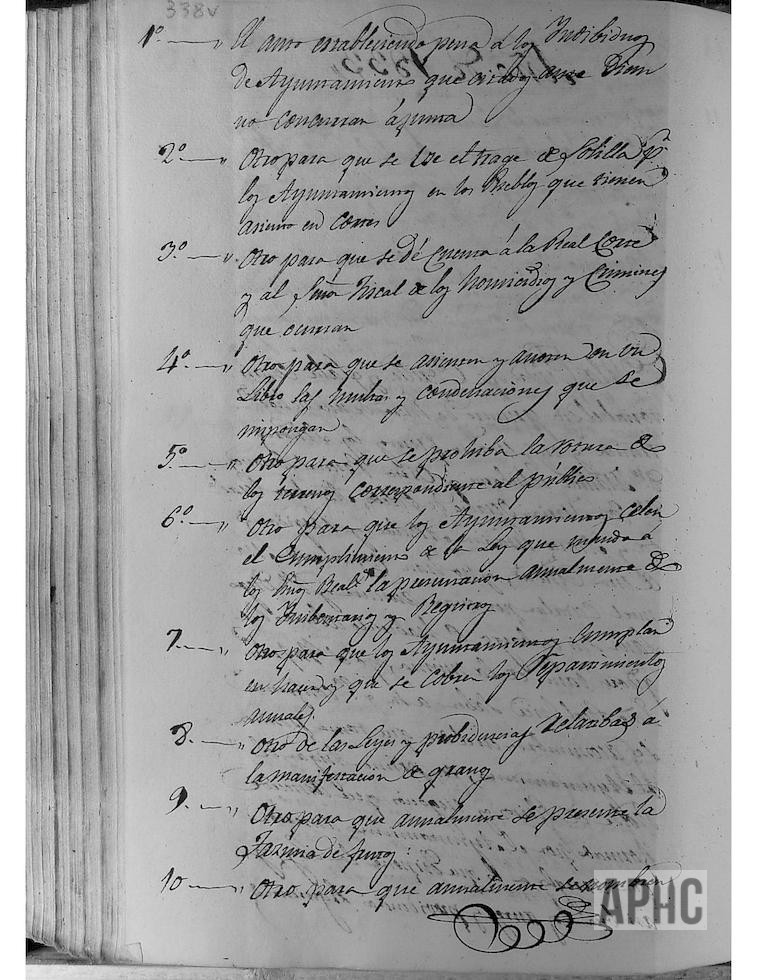 338v
1º " El auto estableciendo pena á los Indibiduos
de Ayuntamiento que citados ante Diem
no concurran á junta
2º " Otro para que se use el trage de Golilla pr
los Ayuntamientos en los Pueblos que tienen
asiento en Cortes
3º " Otro para que se dé Cuenta á la Real Corte
y al Señor Fiscal de los homicidios y Crimines
que ocurran
4º " Otro para que se asienten y anoten en un
Libro las multas y condenaciones que se
impongan
5º " Otro para que se prohiba la rotura de
los terrenos correspondiente al público
6º " Otro para que los Ayuntamientos celen
el Cumplimiento de la Ley que manda a
los Reals la presentacion annalmente de
los Imbentarios y Registros
7. " Otro para que los Ayuntamientos Cumplan
en hacer y que se cobren los Repartimientos
annales.
8. " Otro de las Leyes y probidencias relatibas á
la manifestacion de granos
9. " Otro para que annalmente se presente la
de
10 " Otro para que annalmente se nombren
APHC